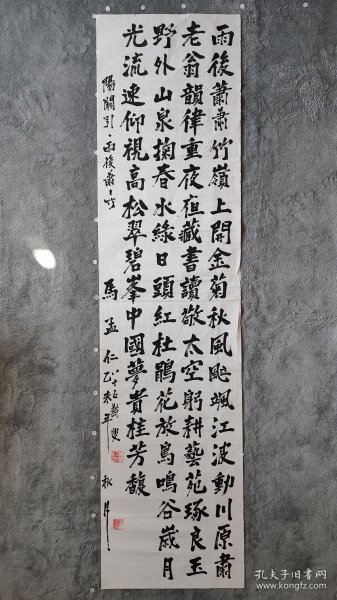 雨後蕭蕭竹嶺上開金菊秋風颭颯江波動川原肅
老翁韻律重夜疸藏書讀敬太空躬耕藝苑琢良玉
野外山泉掬春水綠日頭紅杜鵑花放鳥鳴谷歲月
光流速仰視高松翠碧峯中國夢貴桂芳馥
陽關引·雨後肅々竹
馬孟仁八十五歲叟
乙未年秋月
孔夫子旧书网
www.kongfz.com